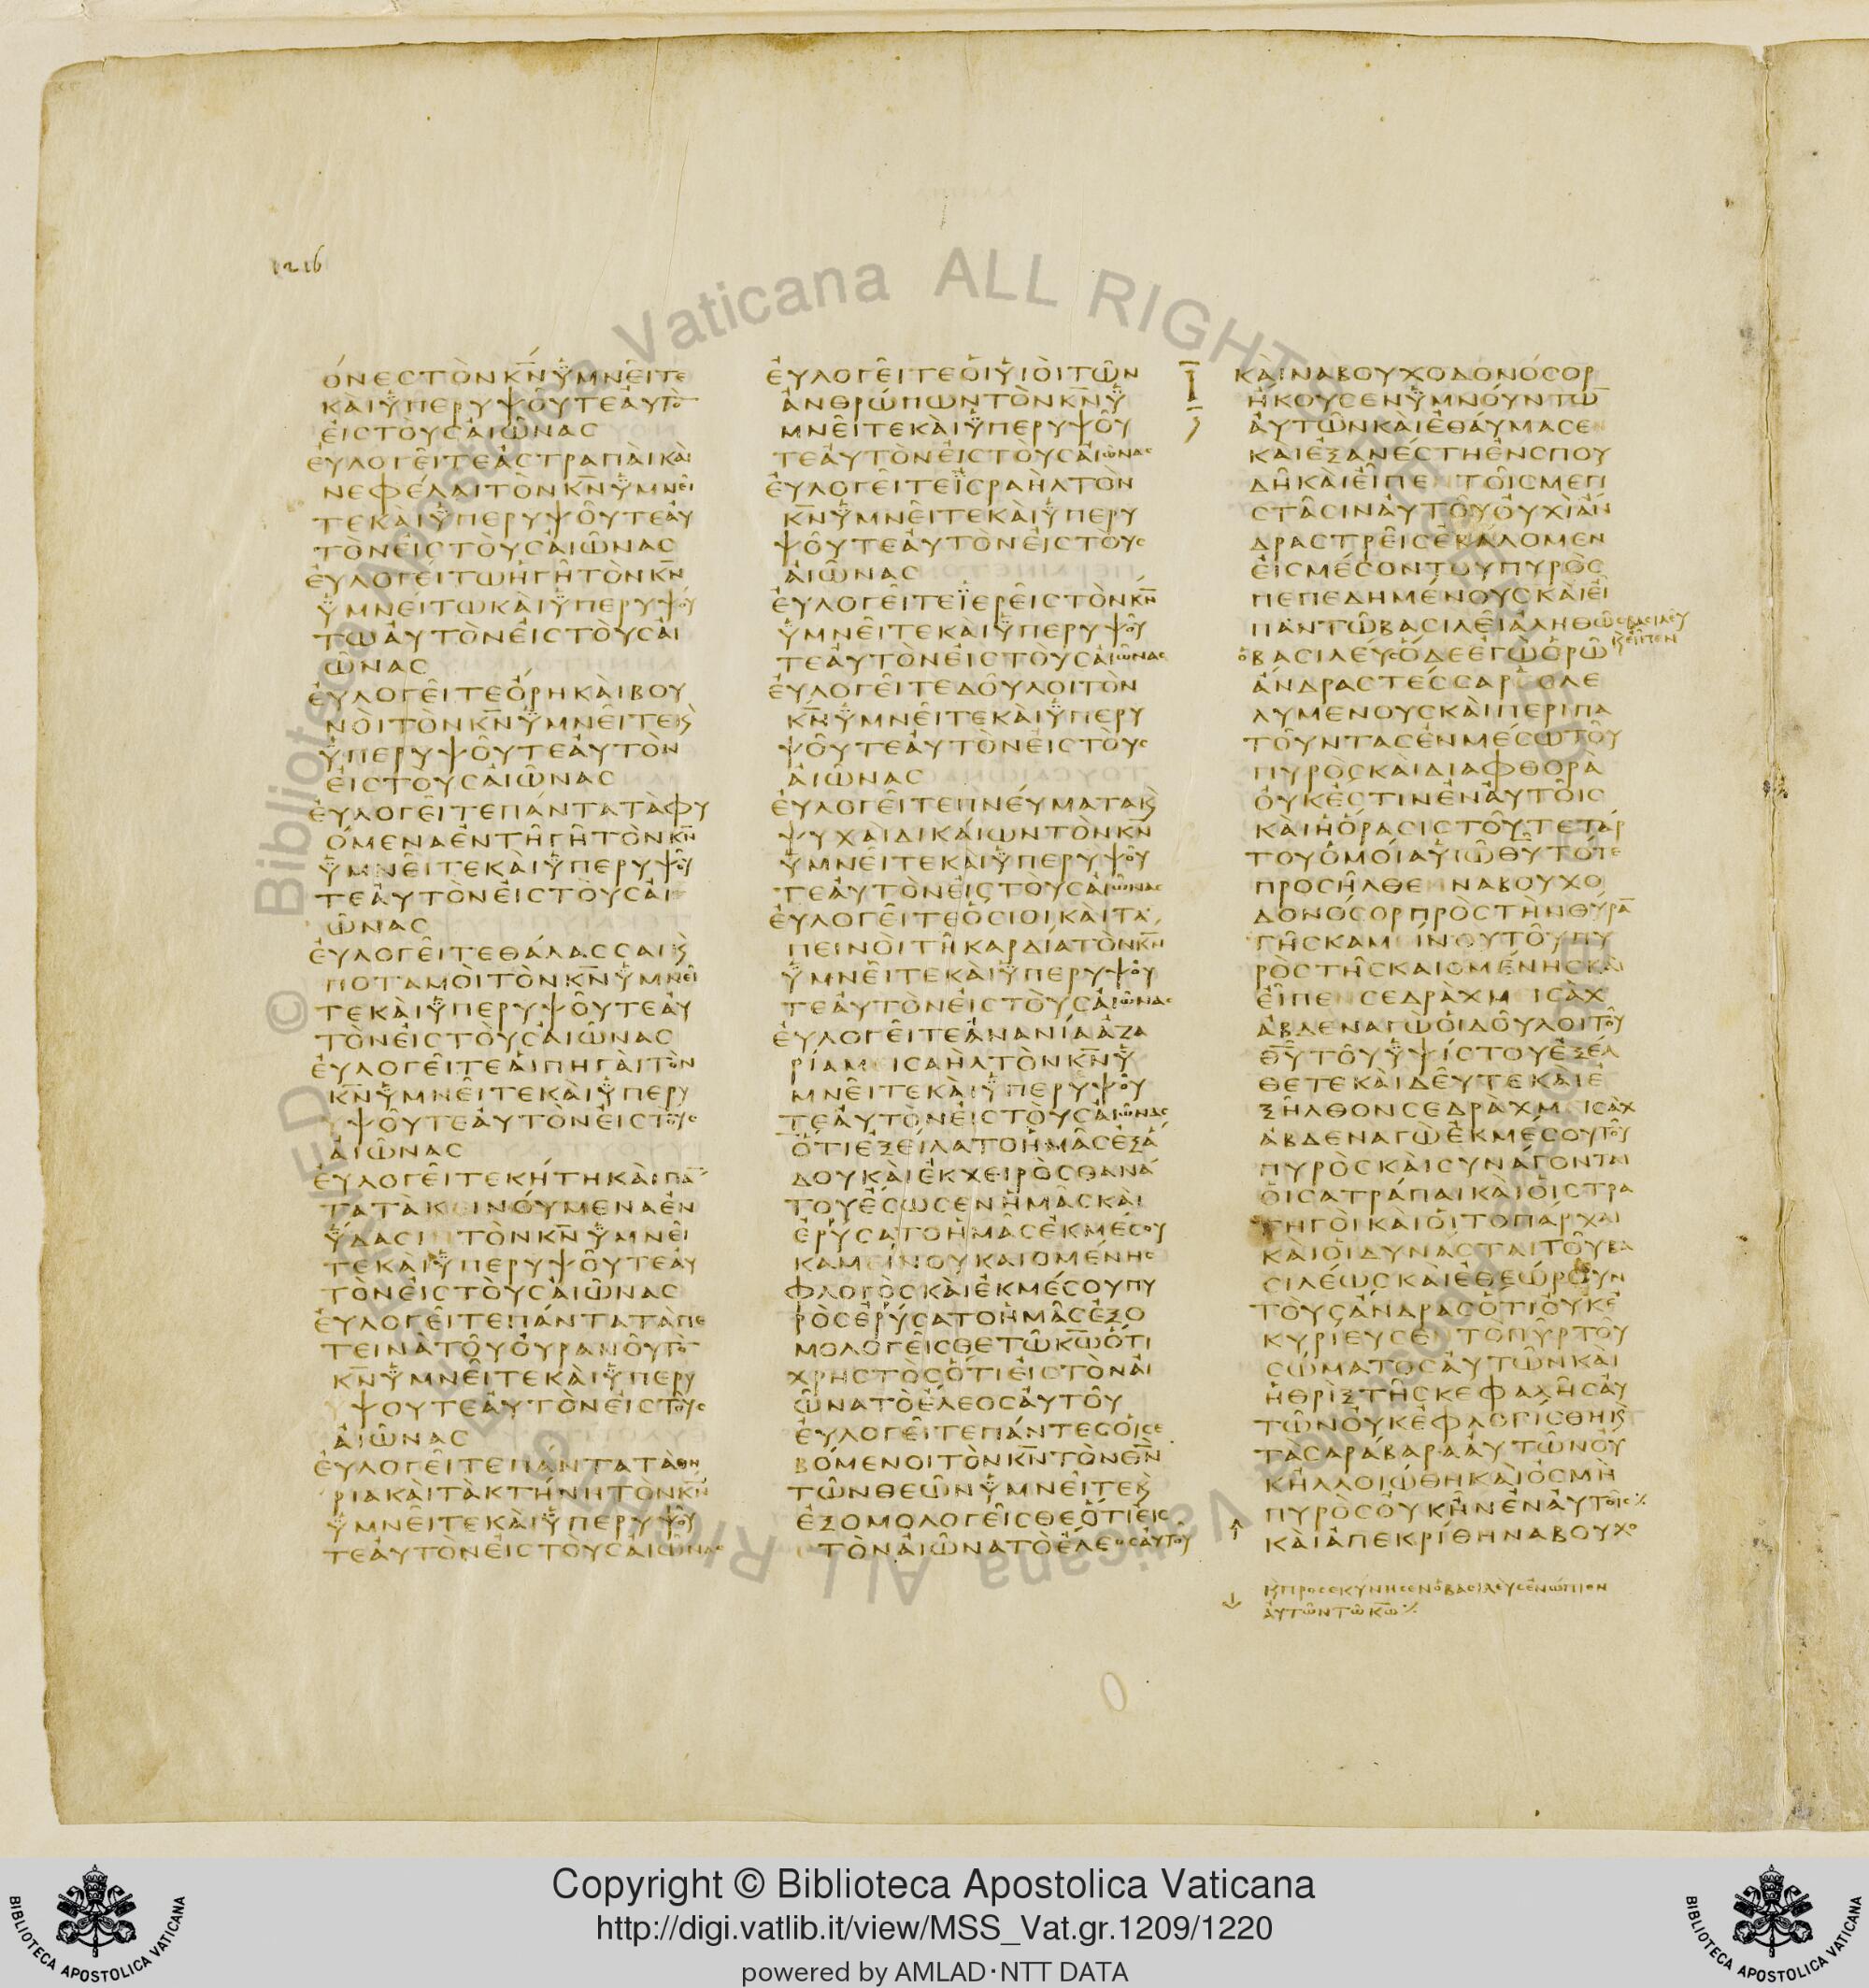 1216
ΌΝΕϹΤῸΝΚ̅Ν̅ΫΜΝΕΙ͂ΤΕ
ΚΑΙΫΠΕΡΥΨΟΥ͂ΤΕΑΥΤΟ̅
ΕΙϹΤΟΥϹΑΙΩΝΑϹ
ΕΥΛΟΓΕΙΤΕΑϹΤΡΑΠΑΙΚΑΙ
ΝΕΦΕΛΑΙΤΟΝΚ̅Ν̅ΫΜΝΕΙ
ΤΕΚΑΙΫΠΕΡΥΨΟΥΤΕΑΥ
ΤΟΝΕΙϹΤΟΥϹΑΙΩΝΑϹ
ΕΥΛΟΓΕΙΤΩΗΓΗΤΟΝΚ̅Ν̅
ΫΜΝΕΙΤΩΚΑΙΫΠΕΡΥΨΟΥ
ΤΩΑΥΤΟΝΕΙϹΤΟΥϹΑΙ
ΩΝΑϹ
ΕΥΛΟΓΕΙΤΕΟΡΗΚΑΙΒΟΥ
ΝΟΙΤΟΝΚ̅Ν̅ΫΜΝΕΙΤΕϏ
ΫΠΕΡΥΨΟΥΤΕΑΥΤΟΝ
ΕΙϹΤΟΥϹΑΙΩΝΑϹ
ΕΥΛΟΓΕΙΤΕΠΑΝΤΑΤΑΦΥ
ΟΜΕΝΑΕΝΤΗΓΗΤΟΝΚ̅Ν̅
ΫΜΝΕΙΤΕΚΑΙΫΠΕΡΥΨΟΥ
ΤΕΑΥΤΟΝΕΙϹΤΟΥϹΑΙ
ΩΝΑϹ
ΕΥΛΟΓΕΙΤΕΘΑΛΑϹϹΑΙϏ
ΠΟΤΑΜΟΙΤΟΝΚ̅Ν̅ΫΜΝΕΙ
ΤΕΚΑΙΫΠΕΡΥΨΟΥΤΕΑΥ
ΤΟΝΕΙϹΤΟΥϹΑΙΩΝΑϹ
ΕΥΛΟΓΕΙΤΕΑΙΠΗΓΑΙΤΟΝ
Κ̅Ν̅ΫΜΝΕΙΤΕΚΑΙΫΠΕΡΥ
ΨΟΥΤΕΑΥΤΟΝΕΙϹΤΟΥϹ
ΑΙΩΝΑϹ
ΕΥΛΟΓΕΙΤΕΚΗΤΗΚΑΙΠΑ̅
ΤΑΤΑΚΕΙΝΟΥΜΕΝΑΕΝ
ΫΔΑϹΙΤΟΝΚ̅Ν̅ΫΜΝΕΙ
ΤΕΚΑΙΫΠΕΡΥΨΟΥΤΕΑΥ
ΤΟΝΕΙϹΤΟΥϹΑΙΩΝΑϹ
ΕΥΛΟΓΕΙΤΕΠΑΝΤΑΤΑΠΕ
ΤΕΙΝΑΤΟΥΟΥΡΑΝΟΥΤΟ̅
Κ̅Ν̅ΫΜΝΕΙΤΕΚΑΙΫΠΕΡΥ
ΨΟΥΤΕΑΥΤΟΝΕΙϹΤΟΥϹ
ΑΙΩΝΑϹ
ΕΥΛΟΓΕΙΤΕΠΑΝΤΑΤΑΘΗ
ΡΙΑΚΑΙΤΑΚΤΗΝΗΤΟΝΚ̅Ν̅
ΫΜΝΕΙΤΕΚΑΙΫΠΕΡΥΨΟΥ
ΤΕΑΥΤΟΝΕΙϹΤΟΥϹΑΙΩΝΑϹ
ΕΥΛΟΓΕΙΤΕΟΙΫΙΟΙΤΩΝ
ΑΝΘΡΩΠΩΝΤΟΝΚ̅Ν̅Ϋ
ΜΝΕΙΤΕΚΑΙΫΠΕΡΥΨΟΥ
ΤΕΑΥΤΟΝΕΙϹΤΟΥϹΑΙΩΝΑϹ
ΕΥΛΟΓΕΙΤΕΪϹΡΑΗΛΤΟΝ
Κ̅Ν̅ΫΜΝΕΙΤΕΚΑΙΫΠΕΡΥ
ΨΟΥΤΕΑΥΤΟΝΕΙϹΤΟΥϹ
ΑΙΩΝΑϹ
ΕΥΛΟΓΕΙΤΕΪΕΡΕΙϹΤΟΝΚ̅Ν̅
ΫΜΝΕΙΤΕΚΑΙΫΠΕΡΥΨΟΥ
ΤΕΑΥΤΟΝΕΙϹΤΟΥϹΑΙΩΝΑϹ
ΕΥΛΟΓΕΙΤΕΔΟΥΛΟΙΤΟΝ
Κ̅Ν̅ΫΜΝΕΙΤΕΚΑΙΫΠΕΡΥ
ΨΟΥΤΕΑΥΤΟΝΕΙϹΤΟΥϹ
ΑΙΩΝΑϹ
ΕΥΛΟΓΕΙΤΕΠΝΕΥΜΑΤΑϏ
ΨΥΧΑΙΔΙΚΑΙΩΝΤΟΝΚ̅Ν̅
ΫΜΝΕΙΤΕΚΑΙΫΠΕΡΥΨΟΥ
ΤΕΑΥΤΟΝΕΙϹΤΟΥϹΑΙΩΝΑϹ
ΕΥΛΟΓΕΙΤΕΟϹΙΟΙΚΑΙΤΑ
ΠΕΙΝΟΙΤΗΚΑΡΔΙΑΤΟΝΚ̅Ν̅
ΫΜΝΕΙΤΕΚΑΙΫΠΕΡΥΨΟΥ
ΤΕΑΥΤΟΝΕΙϹΤΟΥϹΑΙΩΝΑϹ
ΕΥΛΟΓΕΙΤΕΑΝΑΝΙΑΑΖΑ
ΡΙΑΜΙϹΑΗΛΤΟΝΚ̅Ν̅Ϋ
ΜΝΕΙΤΕΚΑΙΫΠΕΡΥΨΟΥ
ΤΕΑΥΤΟΝΕΙϹΤΟΥϹΑΙΩΝΑϹ
ΟΤΙΕΞΕΙΛΑΤΟΗΜΑϹΕΞΑ
ΔΟΥΚΑΙΕΚΧΕΙΡΟϹΘΑΝΑ
ΤΟΥΕϹΩϹΕΝΗΜΑϹΚΑΙ
ΕΡΥϹΑΤΟΗΜΑϹΕΚΜΕϹΟΥ
ΚΑΜΕΙΝΟΥΚΑΙΟΜΕΝΗϹ
ΦΛΟΓΟϹΚΑΙΕΚΜΕϹΟΥΠΥ
ΡΟϹΕΡΥϹΑΤΟΗΜΑϹΕΞΟ
ΜΟΛΟΓΕΙϹΘΕΤΩΚ̅Ω̅ΟΤΙ
ΧΡΗϹΤΟϹΟΤΙΕΙϹΤΟΝΑΙ
ΩΝΑΤΟΕΛΕΟϹΑΥΤΟΥ
ΕΥΛΟΓΕΙΤΕΠΑΝΤΕϹΟΙϹΕ
ΒΟΜΕΝΟΙΤΟΝΚ̅Ν̅ΤΟΝΘ̅Ν̅
ΤΩΝΘΕΩΝΫΜΝΕΙΤΕϏ
ΕΞΟΜΟΛΟΓΕΙϹΘΕΟΤΙΕΙϹ
ΤΟΝΑΙΩΝΑΤΟΕΛΕΟϹΑΥΤΟΥ
ΚΑΙΝΑΒΟΥΧΟΔΟΝΟϹΟΡ
ΗΚΟΥϹΕΝΫΜΝΟΥΝΤΩ̅
ΑΥΤΩΝΚΑΙΕΘΑΥΜΑϹΕΝ
ΚΑΙΕΞΑΝΕϹΤΗΕΝϹΠΟΥ
ΔΗΚΑΙΕΙΠΕΝΤΟΙϹΜΕΓΙ
ϹΤΑϹΙΝΑΥΤΟΥΟΥΧΙΑΝ
ΔΡΑϹΤΡΕΙϹΕΒΑΛΟΜΕΝ
ΕΙϹΜΕϹΟΝΤΟΥΠΥΡΟϹ
ΠΕΠΕΔΗΜΕΝΟΥϹΚΑΙΕΙ
ΠΑΝΤΩΒΑϹΙΛΕΙΑΛΗΘΩϹΒΑϹΙΛΕΥ
ϏΕΙΠΕΝ
ΟΒΑϹΙΛΕΥϹΟΔΕΕΓΩΟΡΩ
ΑΝΔΡΑϹΤΕϹϹΑΡΕϹΛΕ
ΛΥΜΕΝΟΥϹΚΑΙΠΕΡΙΠΑ
ΤΟΥΝΤΑϹΕΝΜΕϹΩΤΟΥ
ΠΥΡΟϹΚΑΙΔΙΑΦΘΟΡΑ
ΟΥΚΕϹΤΙΝΕΝΑΥΤΟΙϹ
ΚΑΙΗΟΡΑϹΙϹΤΟΥΤΕΤΑΡ
ΤΟΥΟΜΟΙΑΫΙΩΘ̅Υ̅ΤΟΤΕ
ΠΡΟϹΗΛΘΕΝΝΑΒΟΥΧΟ
ΔΟΝΟϹΟΡΠΡΟϹΤΗΝΘΥΡΑ̅
ΤΗϹΚΑΜΙΝΟΥΤΟΥΠΥ
ΡΟϹΤΗϹΚΑΙΟΜΕΝΗϹΚΑΙ
ΕΙΠΕΝϹΕΔΡΑΧΜΙϹΑΧ
ΑΒΔΕΝΑΓΩΟΙΔΟΥΛΟΙΤΟΥ
Θ̅Υ̅ΤΟΥΫΨΙϹΤΟΥΕΞΕΛ
ΘΕΤΕΚΑΙΔΕΥΤΕΚΑΙΕ
ΞΗΛΘΟΝϹΕΔΡΑΧΜΙϹΑΧ
ΑΒΔΕΝΑΓΩΕΚΜΕϹΟΥΤΟΥ
ΠΥΡΟϹΚΑΙϹΥΝΑΓΟΝΤΑΙ
ΟΙϹΑΤΡΑΠΑΙΚΑΙΟΙϹΤΡΑ
ΤΗΓΟΙΚΑΙΟΙΤΟΠΑΡΧΑΙ
ΚΑΙΟΙΔΥΝΑϹΤΑΙΤΟΥΒΑ
ϹΙΛΕΩϹΚΑΙΕΘΕΩΡΟΥΝ
ΤΟΥϹΑΝΔΡΑϹΟΤΙΟΥΚΕ
ΚΥΡΙΕΥϹΕΝΤΟΠΥΡΤΟΥ
ϹΩΜΑΤΟϹΑΥΤΩΝΚΑΙ
ΗΘΡΙΞΤΗϹΚΕΦΑΛΗϹΑΥ
ΤΩΝΟΥΚΕΦΛΟΓΙϹΘΗϏ
ΤΑϹΑΡΑΒΑΡΑΑΥΤΩΝΟΥ
ΚΗΛΛΟΙΩΘΗΚΑΙΟϹΜΗ
ΠΥΡΟϹΟΥΚΗΝΕΝΑΥΤΟΙϹ⁒
ΚΑΙΑΠΕΚΡΙΘΗΝΑΒΟΥΧΟ
ϏΠΡΟϹΕΚΥΝΗϹΕΝΟΒΑϹΙΛΕΥϹΕΝΩΠΙΟΝ
ΑΥΤΩΝΤΩΚ̅Ω̅⁒
© Biblioteca Apostolica Vaticana ALL RIGHTS RESERVED
Copyright © Biblioteca Apostolica Vaticana
http://digi.vatlib.it/view/MSS_Vat.gr.1209/1220
powered by AMLAD·NTT DATA
BIBLIOTECA APOSTOLICA VATICANA
BIBLIOTECA APOSTOLICA VATICANA